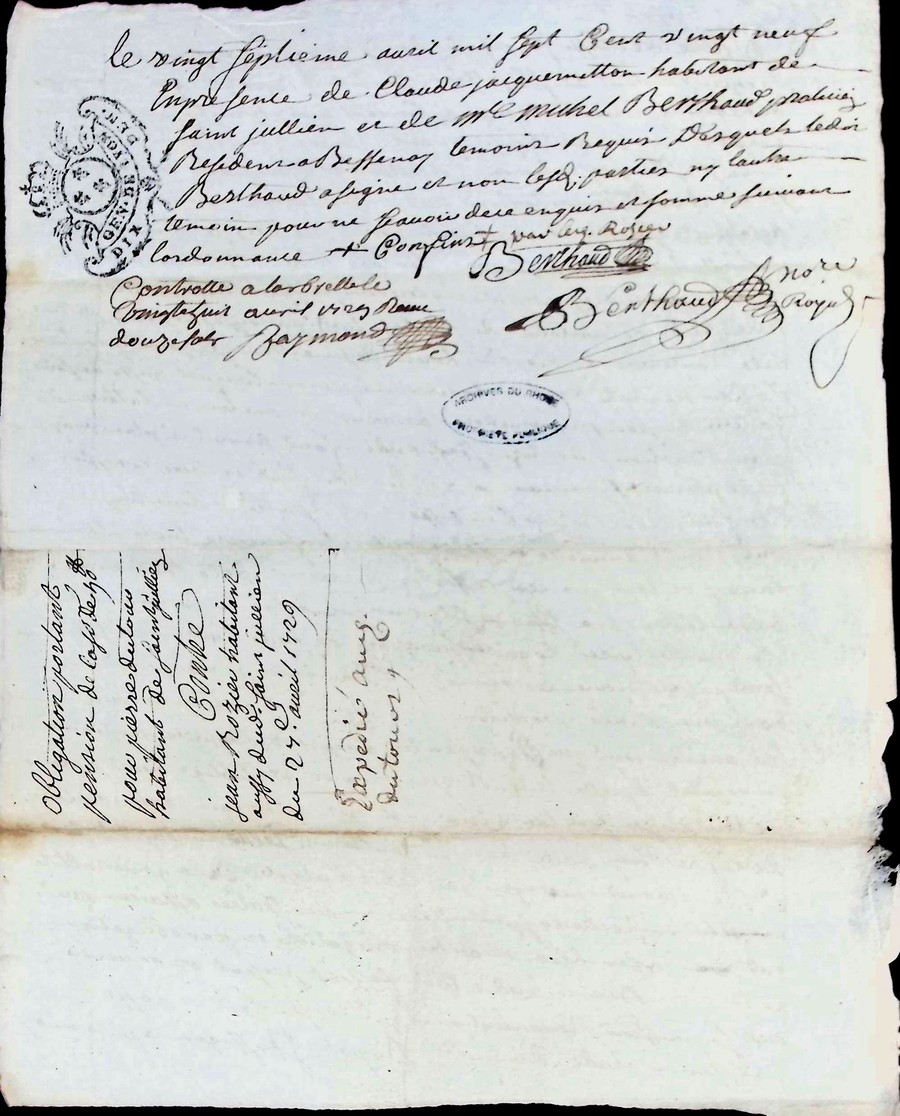 le vingt septieme avril mil sept Cent vingt neuf
En presence de Claude jacquemetton habitant de
saint jullien et de me michel Berthaud praticien
Resident a Bessenay temoins Requis Desquels ledit
Berthaud a signé et non lesd. parties ny lautre
temoin pour ne scavoir de ce enquis et sommé suivant
lordonnance +
Berthaud
Berthaud nore Royal
Controllé a larbrelle le
vingt huit avril 1729 Receu
douze sols Raymond
GEN. DE
DIX
ARCHIVES DU RHONE
PROPRIETE PUBLIQUE
obligation portant
pension de
pour pierre dutour
habitant de saint jullien
Contre
jean Rozier habitant
aussy dud. saint jullien
du 27e. avril 1729
Expedié aud.
dutour